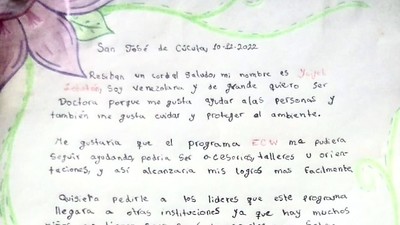 San José de Cúcuta, 10-12-2022
Reciban un cordial saludo, mi nombre es
soy venezolana y de grande quiero ser
Doctora porque me gusta ayudar a las personas y
también me gusta cuidar y proteger el ambiente.
Me gustaria que el programa ECW me pudiera
seguir ayudando, podria ser asesorias, talleres u orien-
taciones, y así alcanzaria mis logros mas facilmente.
Quisiera pedirle a los lideres que este programa
llegara a otras instituciones ya que hay muchos